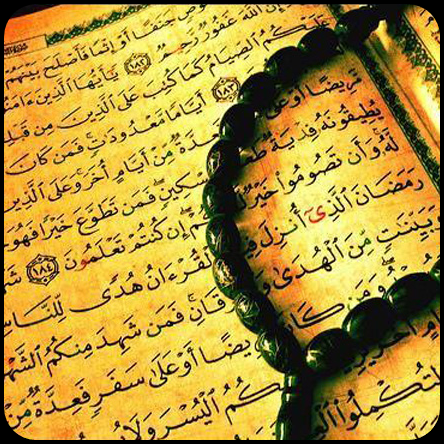 وصٍ جَنَفًا أَوْ إِثْمًا فَأَصْلَحَ بَيْنَهُمْ
إِنَّ اللَّهَ غَفُورٌ رَّحِيمٌ ١٨٢ يَا أَيُّهَا الَّذِينَ ءَامَنُوا
عَلَيْكُمُ الصِّيَامُ كَمَا كُتِبَ عَلَى الَّذِينَ مِن قَبْلِ
١٨٣ أَيَّامًا مَّعْدُودَاتٍ فَمَن كَانَ
مَّرِيضًا أَوْ عَلَى عِدَّةٌ مِّنْ أَيَّامٍ أُخَرَ وَعَلَى الَّذِينَ
يُطِيقُونَهُ فِدْيَةٌ طَعَ مِسْكِينٍ فَمَن تَطَوَّعَ خَيْرًا فَهُوَ
لَّهُ وَأَن تَصُومُوا خَيْرٌ لَّ إِن كُنتُمْ تَعْلَمُونَ ١٨٤ شَهْ
رَمَضَانَ الَّذِي أُنزِلَ فِي الْقُرْءَانُ هُدًى لِّلنَّاسِ
وَبَيِّنَاتٍ مِّنَ الْهُدَى قَانِ فَمَن شَهِدَ مِنكُمُ الشَّهْ
وَمَن كَانَ رِيضًا أَوْ عَلَى سَفَرٍ فَعِدَّةٌ مِّنْ
كُمُ الْيُسْرَ وَلَا
تُكْمِلُوا الْعِ